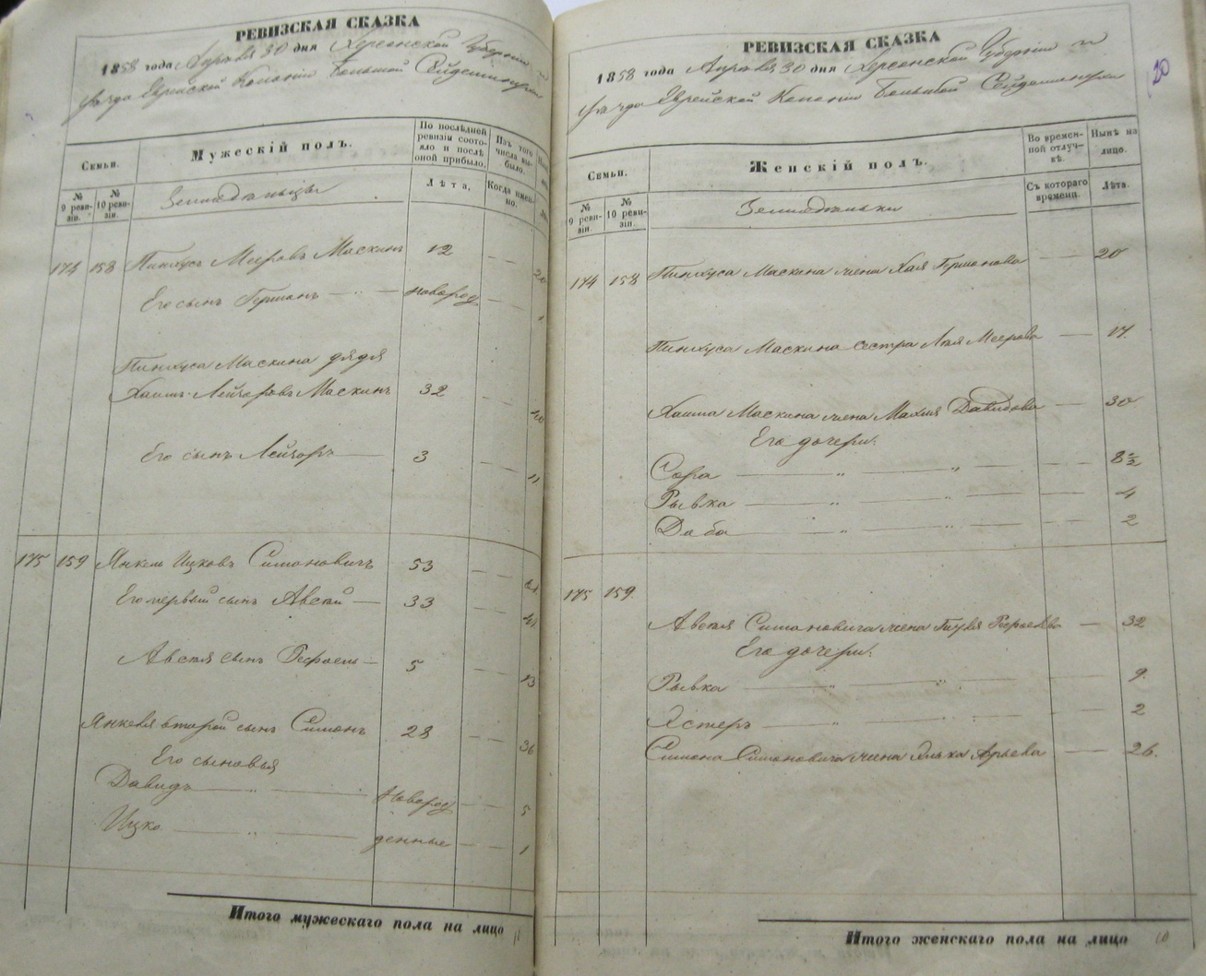 РЕВИЗСКАЯ СКАЗКА
1858 года Апреля 30 дня Херсонской Губернии и
уезда Еврейской Колоніи Большой Сейдеминухи
Семьи.
Мужескій полъ.
По послѣдней ревизіи состояло и послѣ оной прибыло.
Изъ того числа выбыло.
№ 9 ревизіи.
№ 10 ревизіи.
Земледѣльцы
Лѣта.
Когда именно.
174 158 Пинхусъ Мееровъ Маскинъ 12 — — 20
Его сынъ Германъ — — новород — — 1
Пинхуса Маскина дядя
Хаимъ Лейзеровъ Маскинъ 32 — — 40
Его сынъ Лейзеръ — 3 — — 11
175 159 Янкель Ицковъ Симановичъ 53 — —
Его первый сынъ Авсей — 33 — — 41
Авсея сынъ Рефоель — 5 — — 13
Янкеля второй сынъ Симонъ 28 — — 36
Его сыновья
Давидъ — " — новорож — — 5
Ицко — " — денные — — 1
Итого мужескаго пола на лицо
РЕВИЗСКАЯ СКАЗКА
20
1858 года Апреля 30 дня Херсонской Губерніи и
уезда Еврейской Колоніи Большой Сейдеминухи
Семьи.
Женскій полъ.
Во временной отлучкѣ.
Нынѣ на лицо.
№ 9 ревизіи.
№ 10 ревизіи.
Земледѣльки
Съ котораго времени.
Лѣта.
174 158 Пинхуса Маскина жена Хая Германова — — 20
Пинхуса Маскина сестра Лея Меерова — 17.
Хаима Маскина жена Малия Давидова — 30
Его дочери:
Сора — " — " — — 8½
Рывка — " — " — — 4
Доба — " — " — — 2
175 159.
Авсея Симановича жена Рефоелева — 32
Его дочери:
Рывка — " — " — — 9.
Эстеръ — " — " — — 2
Симона Симановича жена Элька Арьева — — 26.
Итого женскаго пола на лицо 10